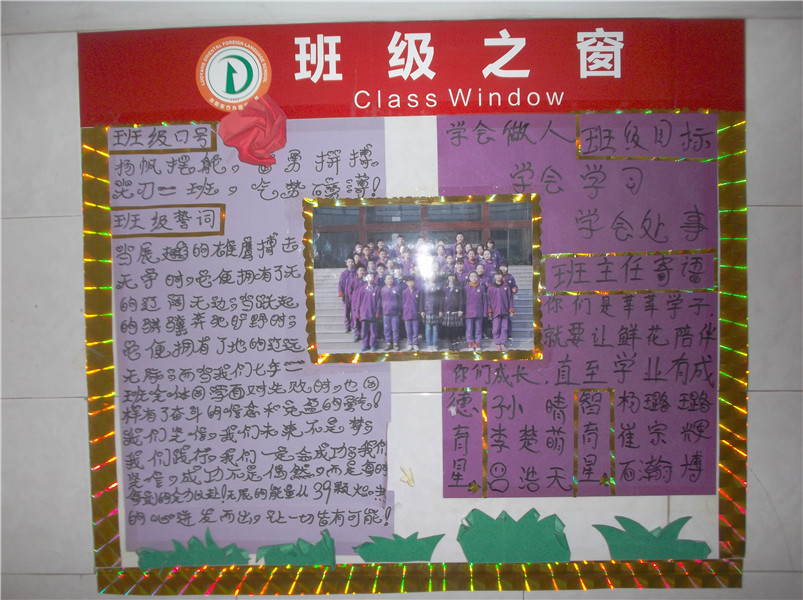 班级之窗
Class Window
班级口号
扬帆摆舵，勇拼搏
班，气势磅礴！
班级誓词
当展翅的雄鹰搏击
无穹时，便拥有了无
的辽阔无动；当跃起
的骐骥奔驰旷野时，
便拥有了地的辽远
无际；而当我们七年二
班全体同学面对失败时，也同
样有了奋斗的信奋和充盈的勇气！
我们坚信，我们未来不是梦；
我们现在，我们一定会成功；我们
坚信，成功不是偶然，而是
无尽的能量从39颗火热
的心迸发而出，让一切皆有可能！
学会做人 班级目标
学会学习
学会处事
班主任寄语
你们是莘莘学子
就要让鲜花陪伴
你们成长，直至学业有成
德育星 孙晴 李楚萌 吕浩天
智育星 杨璐璐 崔宗 石瀚博